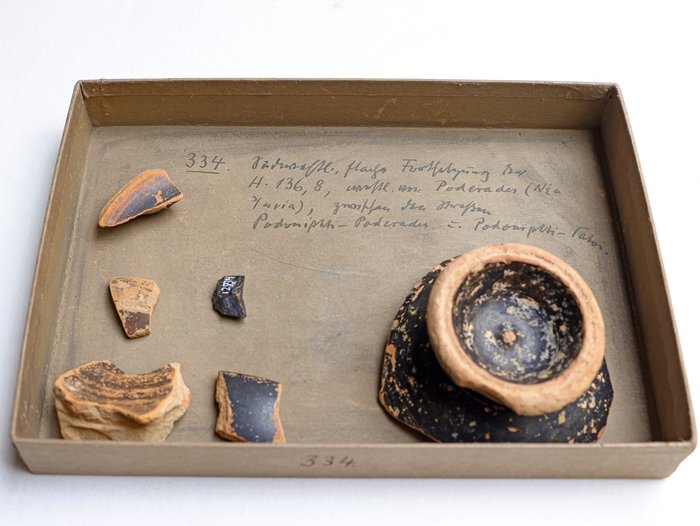 334. Südwestl., flache Fortsetzung der
H. 136,8, westl. von Poderades (Nea
), zwischen den Straßen
Podoniphti-Poderades u. Podoniphti-Tatoi.
334